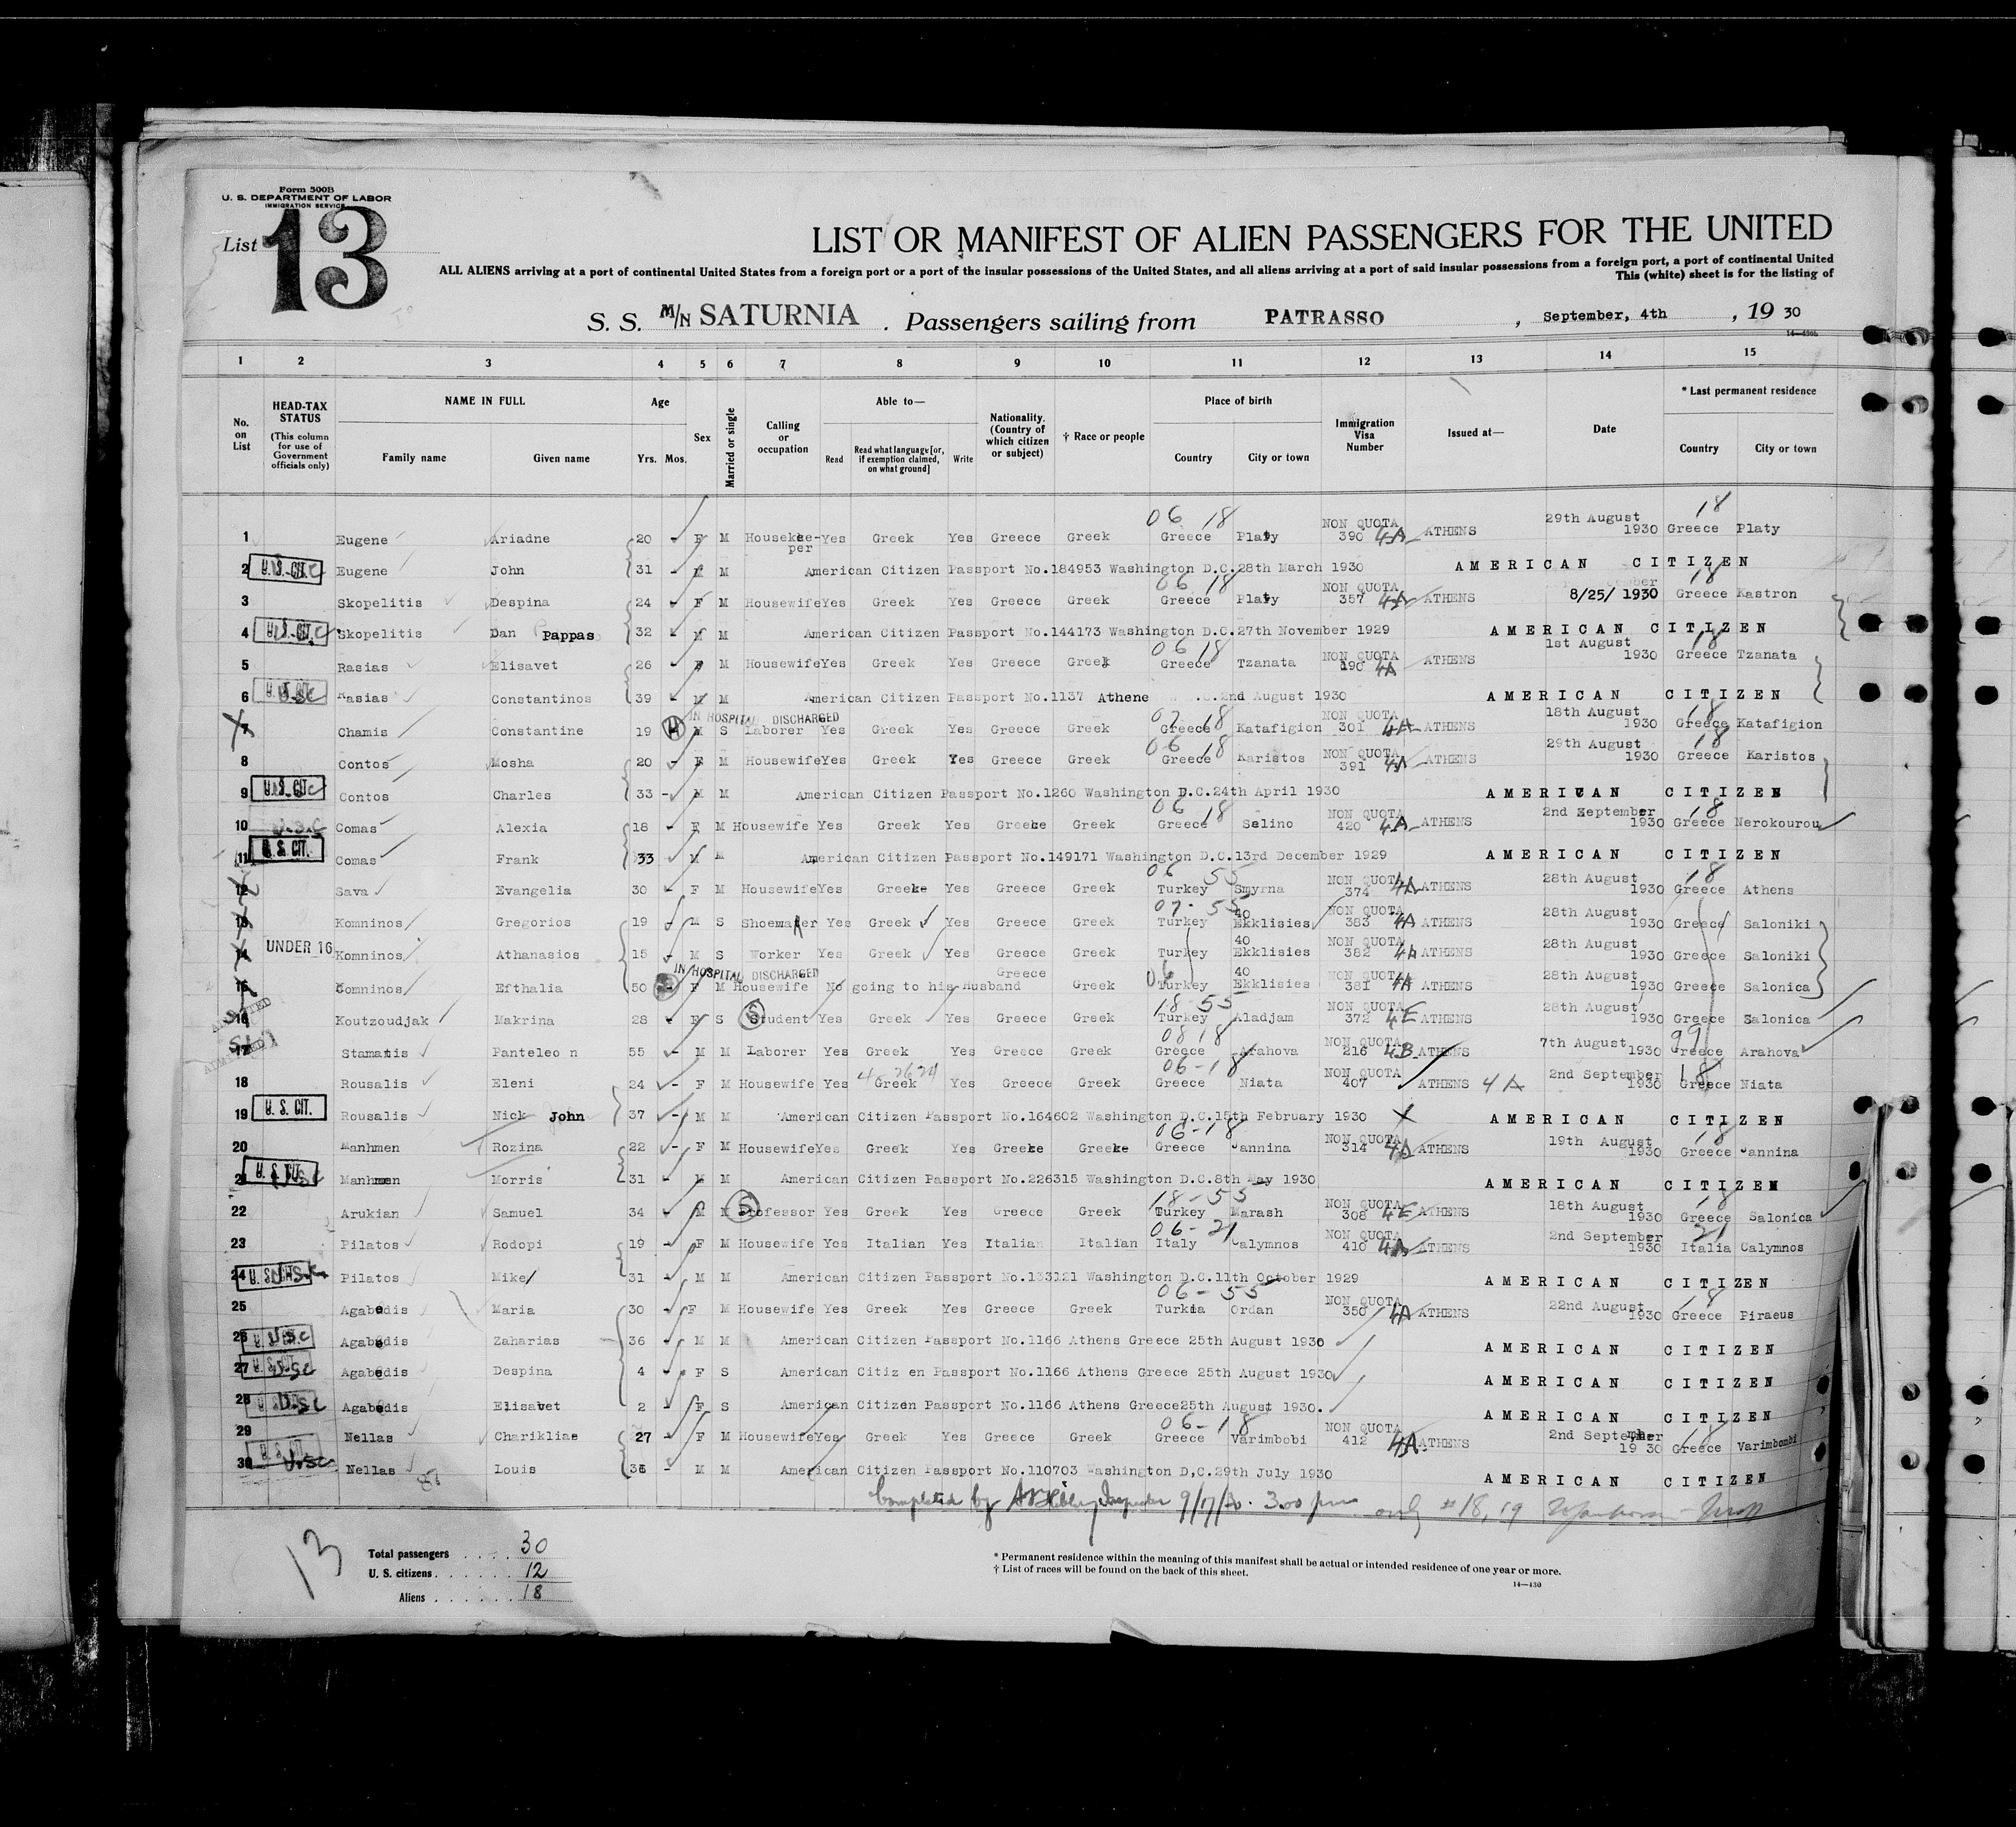 Form 500B
U. S. DEPARTMENT OF LABOR
IMMIGRATION SERVICE
List 13
LIST OR MANIFEST OF ALIEN PASSENGERS FOR THE UNITED
ALL ALIENS arriving at a port of continental United States from a foreign port or a port of the insular possessions of the United States, and all aliens arriving at a port of said insular possessions from a foreign port, a port of continental United
This (white) sheet is for the listing of
S. S. M/N SATURNIA . Passengers sailing from PATRASSO , September, 4th , 19 30
14—430b
1 2 3 4 5 6 7 8 9 10 11 12 13 14 15
No. on List
HEAD-TAX STATUS
(This column for use of Government officials only)
NAME IN FULL
Family name Given name
Age
Yrs. Mos.
Sex
Married or single
Calling or occupation
Able to—
Read Read what language [or, if exemption claimed, on what ground] Write
Nationality. (Country of which citizen or subject)
† Race or people
Place of birth
Country City or town
Immigration Visa Number
Issued at—
Date
* Last permanent residence
Country City or town
1 Eugene Ariadne 20 - F M Housekee-per Yes Greek Yes Greece Greek 06 18 Greece Platy NON QUOTA 390 4A ATHENS 29th August 1930 18 Greece Platy
2 U.S.CIT. Eugene John 31 - M M American Citizen Passport No.184953 Washington D.C.28th March 1930 AMERICAN CITIZEN
3 Skopelitis Despina 24 - F M Housewife Yes Greek Yes Greece Greek 06 18 Greece Platy NON QUOTA 357 4A ATHENS 8/25/ 1930 18 Greece Kastron
4 U.S.CIT. Skopelitis Dan Pappas 32 - M M American Citizen Passport No.144173 Washington D.C.27th November 1929 AMERICAN CITIZEN
5 Rasias Elisavet 26 F M Housewife Yes Greek Yes Greece Greek 06 18 Greece Tzanata NON QUOTA 190 4A ATHENS 1st August 1930 18 Greece Tzanata
6 USC Rasias Constantinos 39 - M M American Citizen Passport No.1137 Athene .C.2nd August 1930 AMERICAN CITIZEN
7 Chamis Constantine 19 H IN HOSPITAL DISCHARGED M S Laborer Yes Greek Yes Greece Greek 07 18 Greece Katafigion NON QUOTA 301 4A ATHENS 18th August 1930 18 Greece Katafigion
8 Contos Mosha 20 - F M Housewife Yes Greek Yes Greece Greek 06 18 Greece Karistos NON QUOTA 391 4A ATHENS 29th August 1930 18 Greece Karistos
9 U.S.CIT. Contos Charles 33 - M M American Citizen Passport No.1260 Washington D.C.24th April 1930 AMERICAN CITIZEN
10 Comas Alexia 18 - F M Housewife Yes Greek Yes Greece Greek 06 18 Greece Selino NON QUOTA 420 4A ATHENS 2nd September 1930 18 Greece Nerokourou
11 U.S. CIT. Comas Frank 33 M M American Citizen Passport No.149171 Washington D.C.13rd December 1929 AMERICAN CITIZEN
12 Sava Evangelia 30 - F M Housewife Yes Greeke Yes Greece Greek 06 55 Turkey Smyrna NON QUOTA 374 4A ATHENS 28th August 1930 18 Greece Athens
13 Komninos Gregorios 19 - M S Shoemaker Yes Greek Yes Greece Greek 07- 55 Turkey 40 Ekklisies NON QUOTA 383 4A ATHENS 28th August 1930 Greece Saloniki
14 UNDER 16 Komninos Athanasios 15 - M S Worker Yes Greek Yes Greece Greek Turkey 40 Ekklisies NON QUOTA 382 4A ATHENS 28th August 1930 Greece Saloniki
15 Komninos Efthalia 50 IN HOSPITAL DISCHARGED F M Housewife No going to his husband Greece Greek 06 Turkey 40 Ekklisies NON QUOTA 381 4A ATHENS 28th August 1930 Greece Salonica
16 Koutzoudjak Makrina 28 - F S Student Yes Greek Yes Greece Greek 18-55 Turkey Aladjam NON QUOTA 372 4E ATHENS 28th August 1930 Greece Salonica
17 Stamatis Panteleo n 55 - M M Laborer Yes Greek Yes Greece Greek 08 18 Greece Arahova NON QUOTA 216 4B ATHENS 7th August 1930 99 Greece Arahova
18 Rousalis Eleni 24 - F M Housewife Yes Greek Yes Greece Greek 06-18 Greece Niata NON QUOTA 407 ATHENS 4A 2nd September 1930 18 Greece Niata
19 U. S. CIT. Rousalis Nick John 37 - M M American Citizen Passport No.164602 Washington D.C.15th February 1930 X AMERICAN CITIZEN
20 Manhmen Rozina 22 - F M Housewife Yes Greek Yes Greece Greeke 06-18 Greece Jannina NON QUOTA 314 4A ATHENS 19th August 1930 18 Greece Jannina
21 U.S.CIT. Manhmen Morris 31 - M M American Citizen Passport No.226315 Washington D.C.8th May 1930 AMERICAN CITIZEN
22 Arukian Samuel 34 M M S Professor Yes Greek Yes Greece Greek 18-55 Turkey Marash NON QUOTA 308 4E ATHENS 18th August 1930 18 Greece Salonica
23 Pilatos Rodopi 19 - F M Housewife Yes Italian Yes Italian Italian 06-21 Italy Calymnos NON QUOTA 410 4A ATHENS 2nd September 1930 21 Italia Calymnos
24 Pilatos Mike 31 - M M American Citizen Passport No.133121 Washington D.C.11th October 1929 AMERICAN CITIZEN
25 Agabedis Maria 30 - F M Housewife Yes Greek Yes Greece Greek 06-55 Turkia Ordan NON QUOTA 350 4A ATHENS 22nd August 1930 18 Greece Piraeus
26 USC Agabedis Zaharias 36 - M M American Citizen Passport No.1166 Athens Greece 25th August 1930 AMERICAN CITIZEN
27 USC Agabedis Despina 4 - F S American Citiz en Passport No.1166 Athens Greece 25th August 1930 AMERICAN CITIZEN
28 USC Agabedis Elisavet 2 - F S American Citizen Passport No.1166 Athens Greece25th August 1930. AMERICAN CITIZEN
29 Nellas Charikliae 27 - F M Housewife Yes Greek Yes Greece Greek 06-18 Greece Varimbobi NON QUOTA 412 4A ATHENS 2nd September 19 30 18 Greece Varimbombi
30 USC Nellas Louis 36 - M M American Citizen Passport No.110703 Washington D,C.29th July 1930 AMERICAN CITIZEN
Completed by Inspector 9/17/30. 3.00 pm only #18, 19
13
Total passengers . . . . 30
U. S. citizens . . . . . . . 12
Aliens . . . . . . . 18
* Permanent residence within the meaning of this manifest shall be actual or intended residence of one year or more.
† List of races will be found on the back of this sheet.
14—430